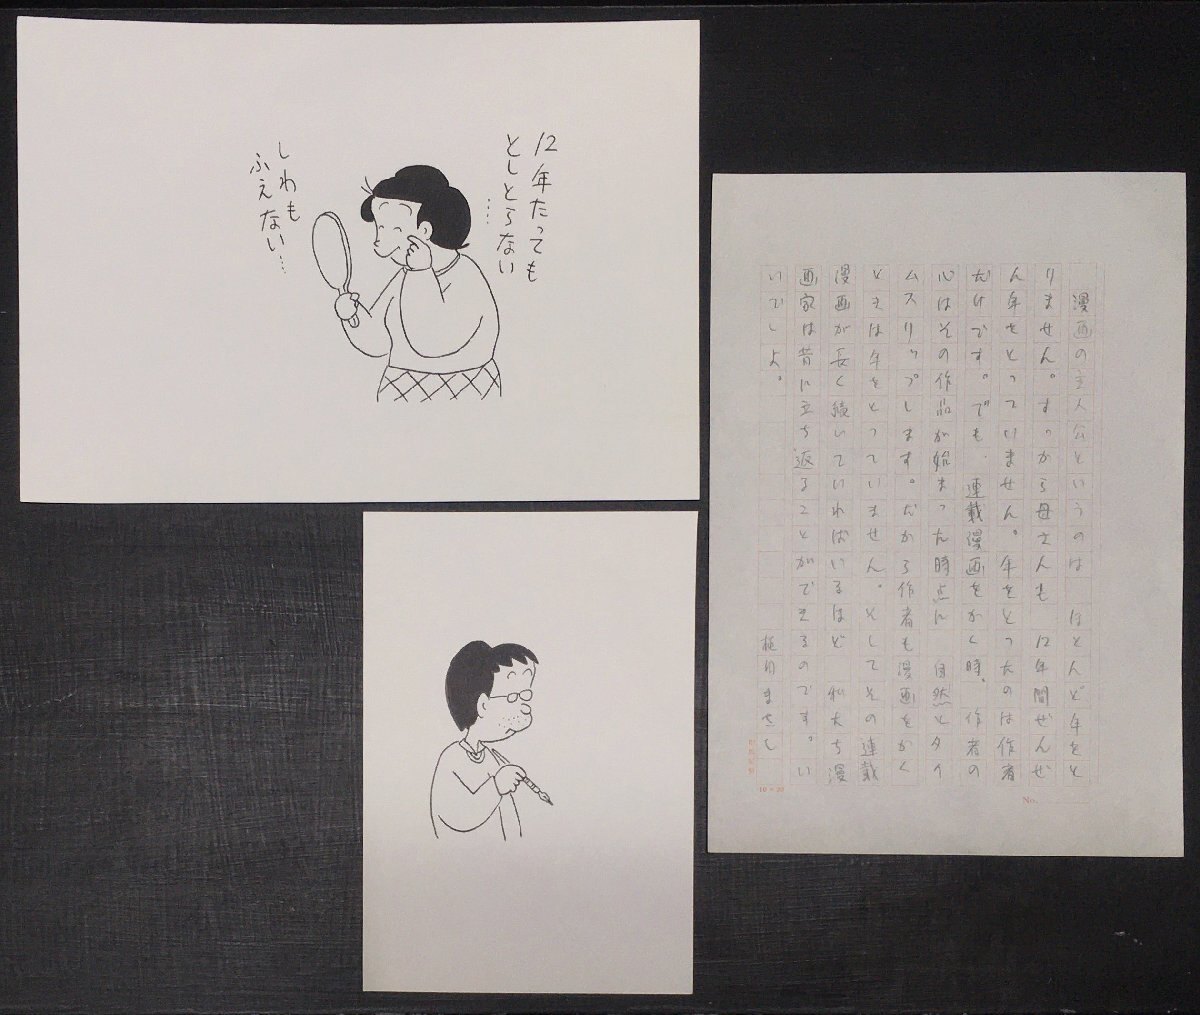 12年たっても
としとらない
……
しわも
ふえない…
漫画の主人公というのは　ほとんど年をと
りません。すっから母さんも　12年間ぜんぜ
ん年をとっていません。年をとったのは作者
だけです。でも、連載漫画をかく時、作者の
心はその作品が始まった時点に　自然とタイ
ムスリップします。だから作者も漫画をかく
ときは年をとっていません。そしてその連載
漫画が長く続いていればいるほど　私たち漫
画家は昔に立ち返ることができるのです。い
いでしょ。
植田まさし
10×20
No.